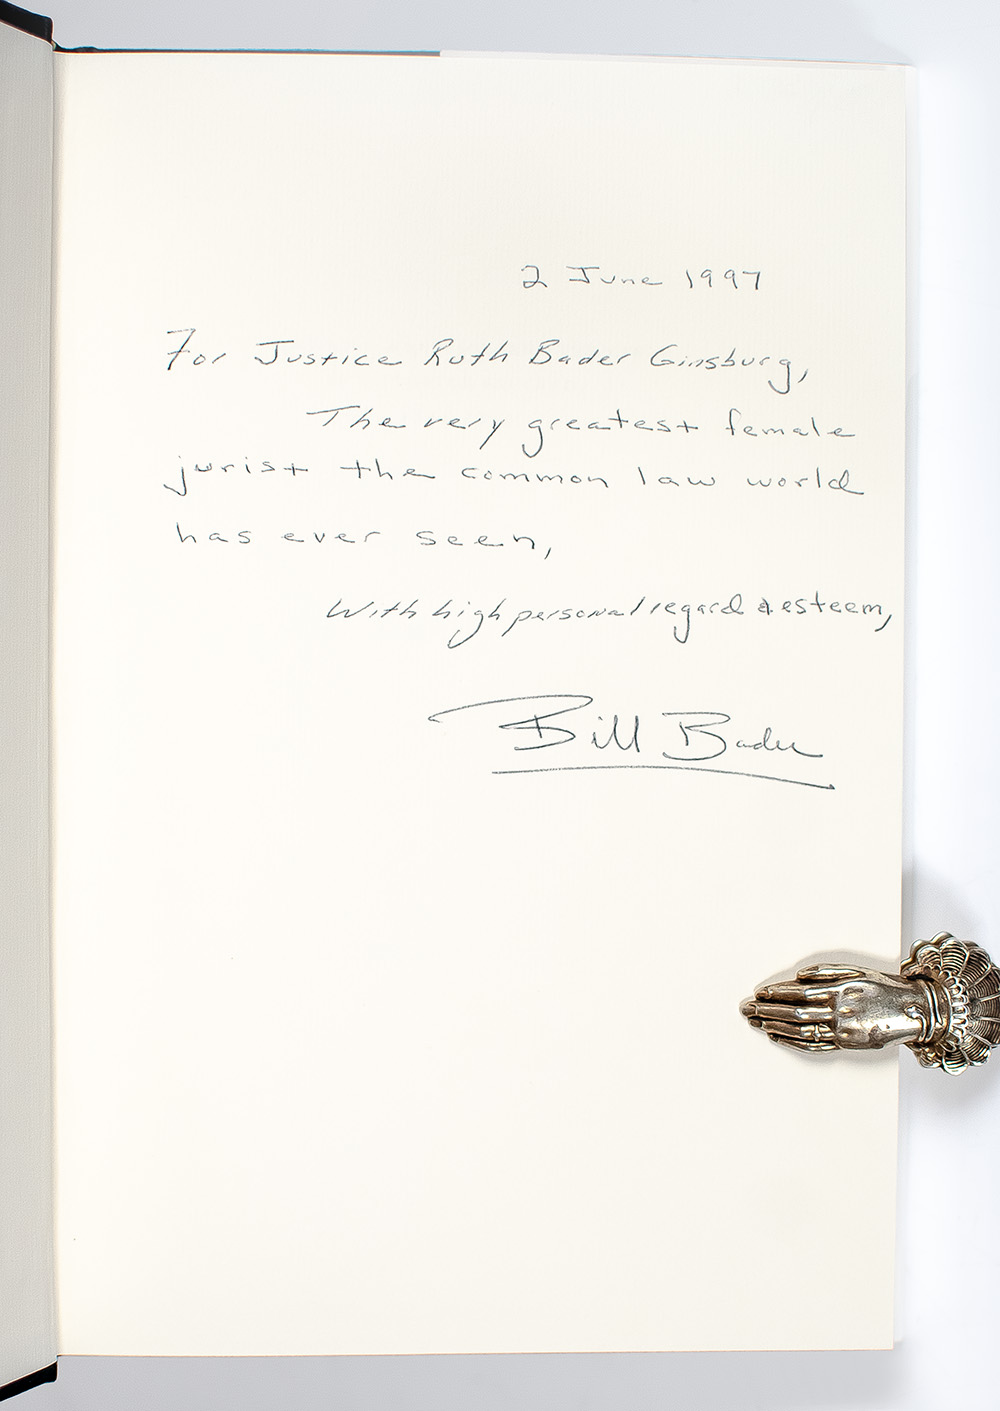 2 June 1997
For Justice Ruth Bader Ginsburg,
The very greatest female
jurist the common law world
has ever seen,
With high personal regard & esteem,
Bill Bader